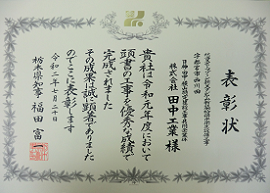 表彰状
株式会社 田中工業 様
貴社は令和元年度において
頭書の工事を優秀な成績で
完成されました
その成果は誠に顕著でありました
のでここに表彰します
令和二年七月二十日
栃木県知事 福田富一